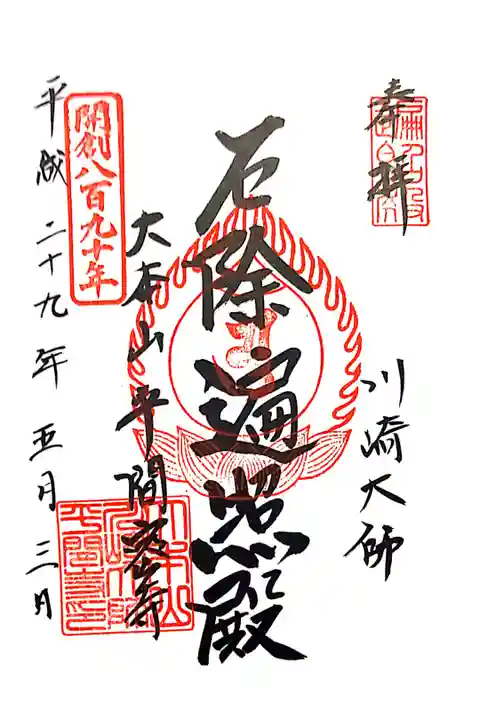 奉拝
川崎大師
厄除遍照殿
大本山平間寺
開創八百九十年
平成二十九年五月三日